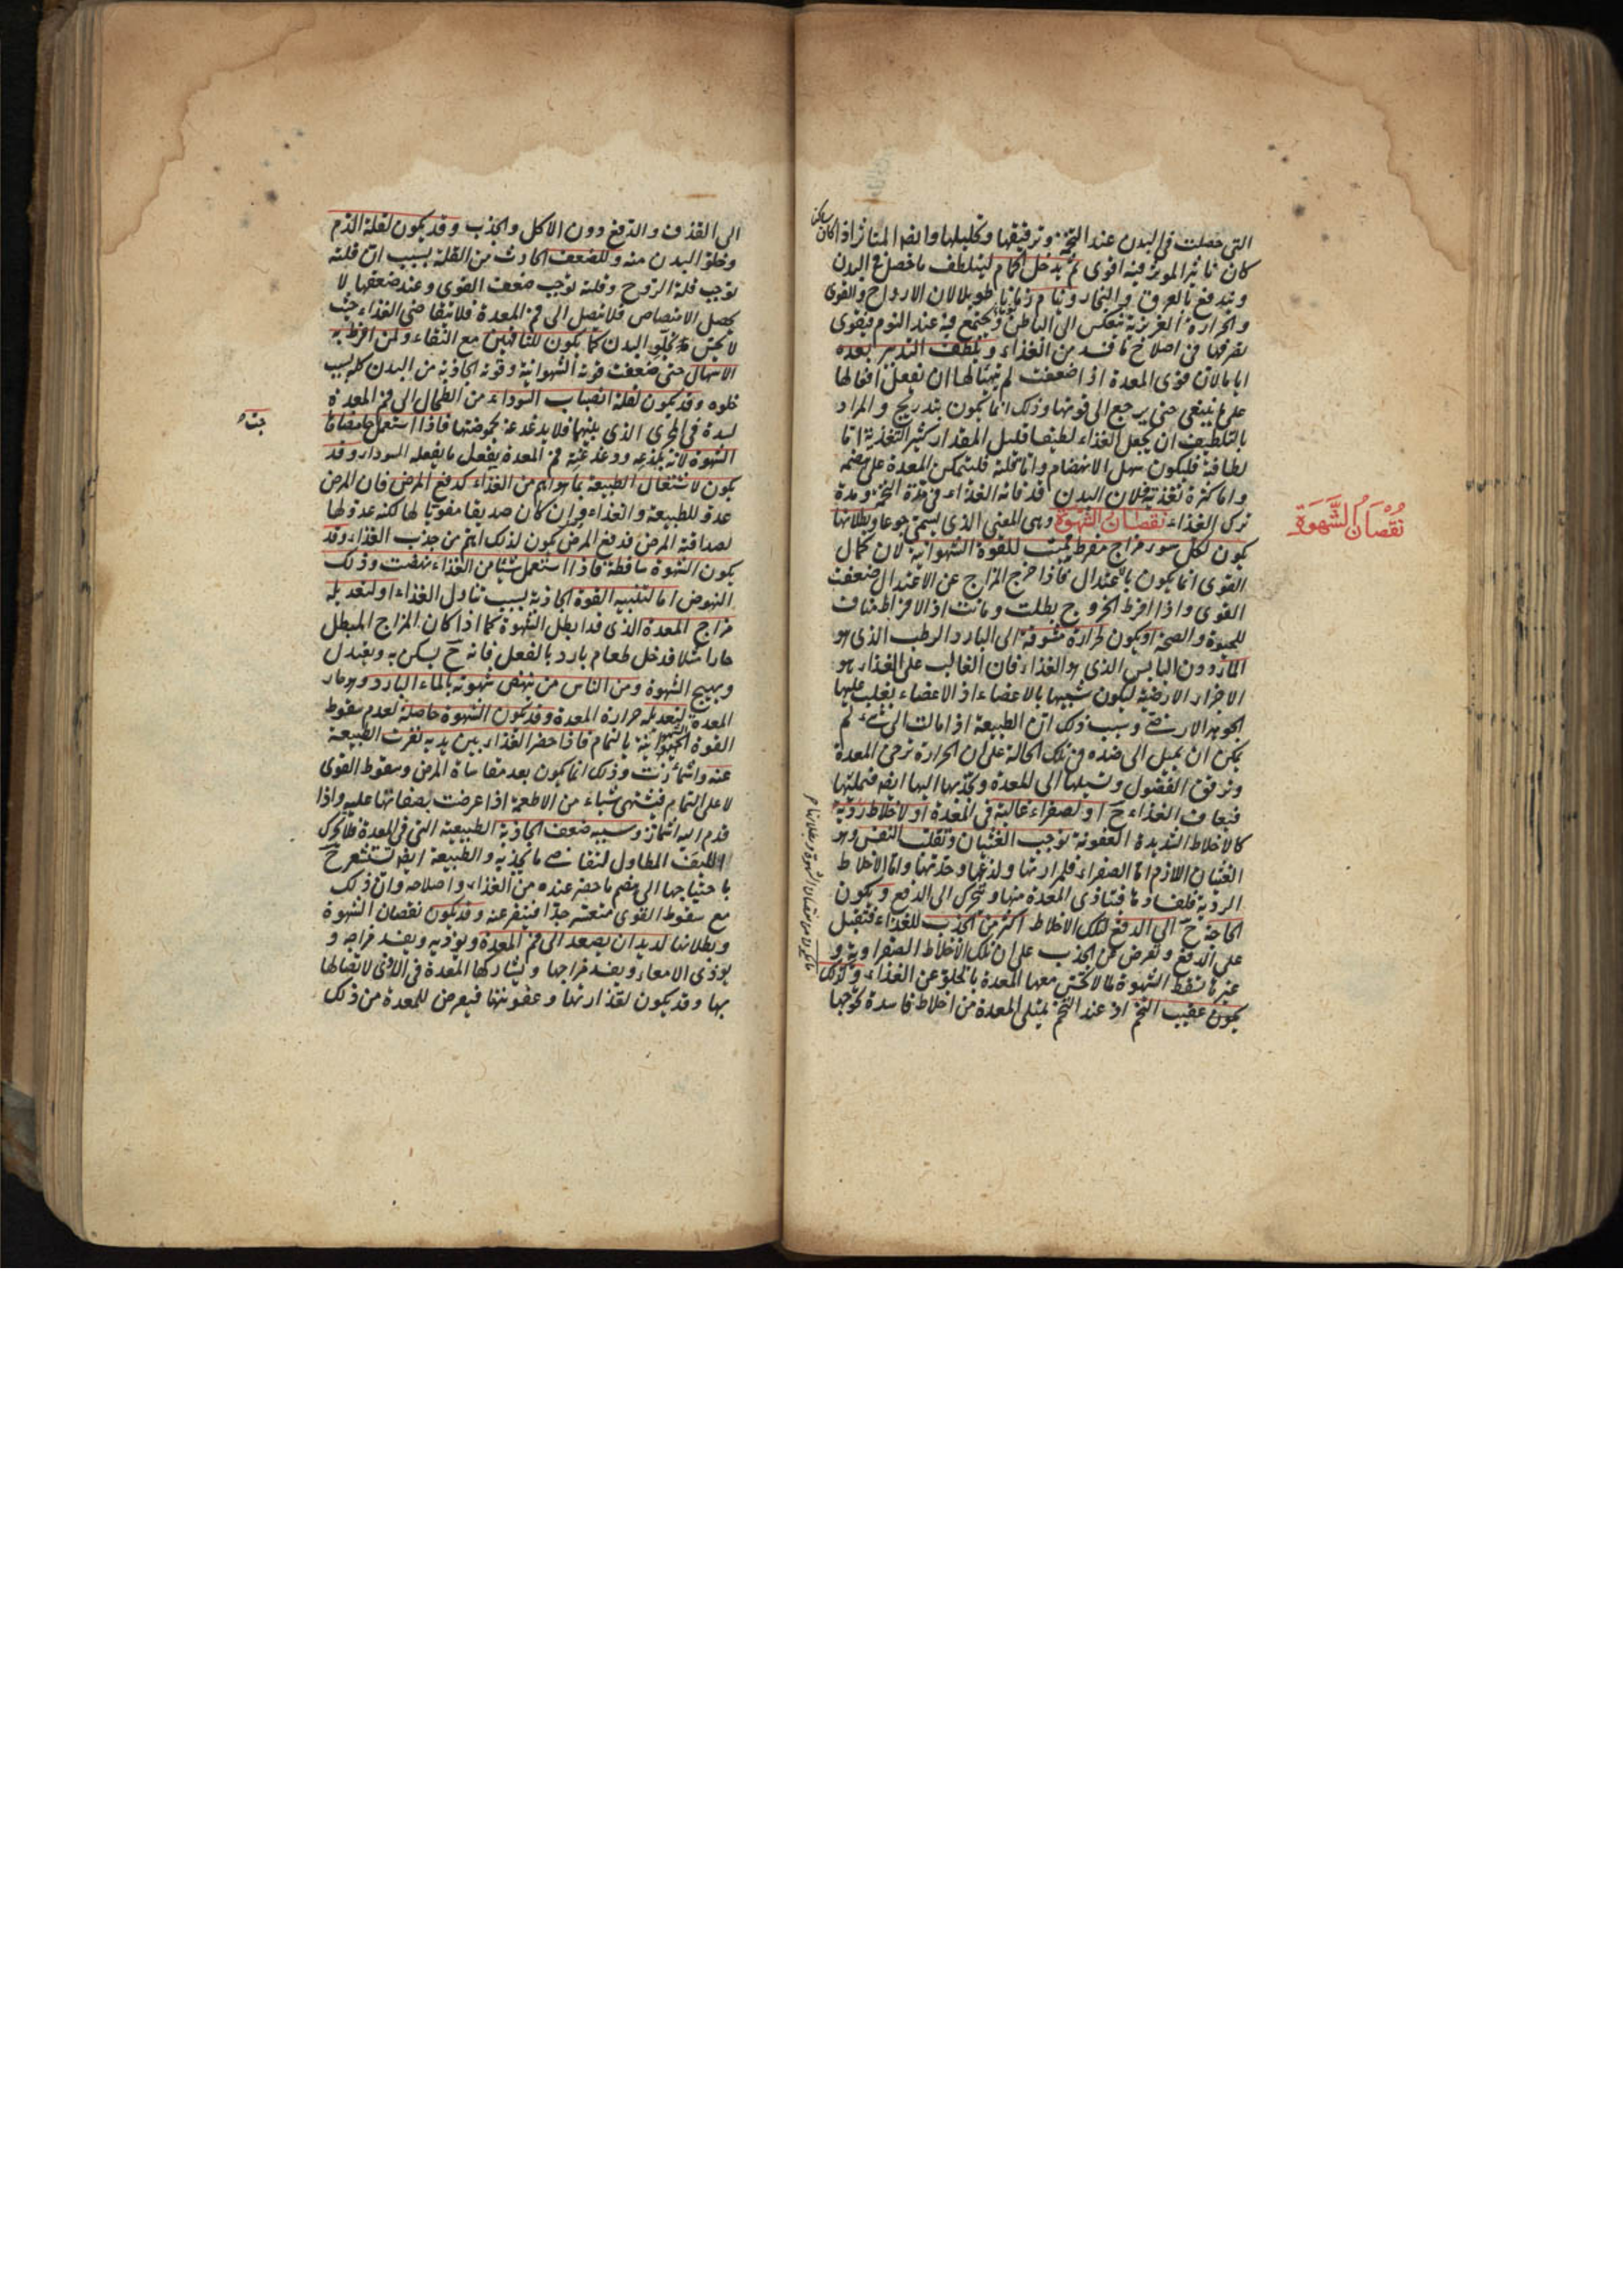 التى حصلت فى البدن عند التخمة وترقيقها وتحليلها وايضا المتاثر اذا كان ساكن
كان تاثير الموثر فيه اقوى ثم يدخل الحمام ليتلطف ما حصل فى البدن
ويندفع بالعرق والبخار وينام زمانا طويلا لان الارواح والقوى
والحرارة الغريزية تنعكس الى الباطن وتجتمع فيه عند النوم فيقوى
تصرفها فى اصلاح ما فسد من الغذاء ويلطف التدبير بعده
اياما لان قوى المعدة اذا ضعفت لم يتهيا لها ان تفعل افعالها
على ما ينبغى حتى يرجع الى قوتها وذلك انما يكون بتدريج والمراد
بالتلطيف ان يجعل الغذاء لطيفا قليل المقدار كثير التغذية اما
لطافته فليكون سهل الانهضام واما قلته فليتمكن المعدة على هضمه
واما كثرة تغذيته فلان البدن قد فاته الغذاء فى مدة التخمة ومدة
ترك الغذاء نقصان الشهوة وهى المعنى الذى يسمى جوعا وبطلانها
يكون لكل سوء مزاج مفرط يميت للقوة الشهوانية لان كمال
القوى انما يكون بالاعتدال فاذا خرج المزاج عن الاعتدال ضعفت
القوى واذا افرط الخروج بطلت وماتت اذ الافراط مناف
للحيوة والصحة او يكون لحرارة مشوقة الى البارد الرطب الذى هو
الماء دون اليابس الذى هو الغذاء فان الغالب على الغذاء هو
الاجزاء الارضية ليكون شبيها بالاعضاء اذ الاعضاء يغلب عليها
الجوهر الارضى وسبب ذلك ان الطبيعة اذا مالت الى شىء لم
يمكن ان يميل الى ضده فى تلك الحالة على ان الحرارة ترخى المعدة
وترقق الفضول وتسيلها الى المعدة وتجذبها اليها ايضا فتملئها
فيعاف الغذاء ح او لصفراء غالبة فى المعدة او لاخلاط ردية
كالاخلاط الشديدة العفونة توجب الغثيان وتقلب النفس وهو
الغثيان اللازم اما الصفراء فلمرارتها ولذعها وحدتها واما الاخلاط
الردية فلفسادها فتتاذى المعدة منها ويتحرك الى الدفع ويكون
الحاجة ح الى الدفع لتلك الاخلاط اكثر من الجذب للغذاء فتقبل
على الدفع وتعرض عن الجذب على ان تلك الاخلاط الصفراوية و
غيرها تسقط الشهوة لما لا تحس معها المعدة بالخلو عن الغذاء وكذلك
يكون عقيب التخم اذ عند التخم يمتلى المعدة من اخلاط فاسدة تحوجها
نقصان الشهوة
الى القذف والدفع دون الاكل والجذب وقد يكون لقلة الدم
وخلو البدن منه وللضعف الحادث من القلة بسبب ان قلته
توجب قلة الروح وقلته توجب ضعف القوى وعند ضعفها لا
يحصل الامتصاص فلا تصل الى فم المعدة فلا تتقاضى الغذاء حيث
لا تحس بخلو البدن كما يكون للناقهين مع النقاء ولمن افرط به
الاسهال حتى ضعفت قوته الشهوانية وقوته الجاذبة من البدن كله بسبب
خلوه وقد يكون لقلة انصباب السوداء من الطحال الى فم المعدة
لسدة فى المجرى الذى بينهما فلا يدغدغه بحموضتها فاذا استعمل حامضا
الشهوة لانه بلذعه ودغدغته فم المعدة يفعل ما يفعله السوداء وقد
يكون لاشتغال الطبيعة بما هو اهم من الغذاء كدفع المرض فان المرض
عدو للطبيعة والغذاء وان كان صديقا مقويا لها لكنه عدو لها
لصداقته المرض فدفع المرض يكون لذلك اهم من جذب الغذاء وقد
يكون الشهوة ساقطة فاذا استعمل شيئا من الغذاء نهضت وذلك
النهوض اما لتنبيه القوة الجاذبة بسبب تناول الغذاء او لتعديله
مزاج المعدة الذى قد ابطل الشهوة كما اذا كان المزاج المبطل
حارا مثلا فدخل طعام بارد بالفعل فانه ح يسكن به ويعتدل
ويهيج الشهوة ومن الناس من تنهض شهوته بالماء البارد وهو حار
المعدة لتعديله حرارة المعدة وقد يكون الشهوة حاصلة لعدم سقوط
القوة الشهوانية بالتمام فاذا حضر الغذاء بين يديه نفرت الطبيعة
عنه واشمأزت وذلك انما يكون بعد مقاساة المرض وسقوط القوى
لا على التمام فيشتهى شياء من الاطعمة اذا عرضت بصفاتها عليه واذا
قدم اليه اشمأز وسببه ضعف الجاذبة الطبيعية التى فى المعدة فلا يحرك
الليف المطاول لتقاضى ما يجذبه والطبيعة ايضا تستشعر ح
باحتياجها الى هضم ما حضر عنده من الغذاء واصلاحه وان ذلك
مع سقوط القوى متعسر جدا فينفر عنه وقد يكون نقصان الشهوة
وبطلانها لديدان يصعد الى فم المعدة ويؤذيه ويفسد مزاجه و
يوذى الامعاء ويفسد مزاجها ويشاركها المعدة فى الاذى لاتصالها
بها وقد يكون لقذارتها وعفونتها فيعرض للمعدة من ذلك